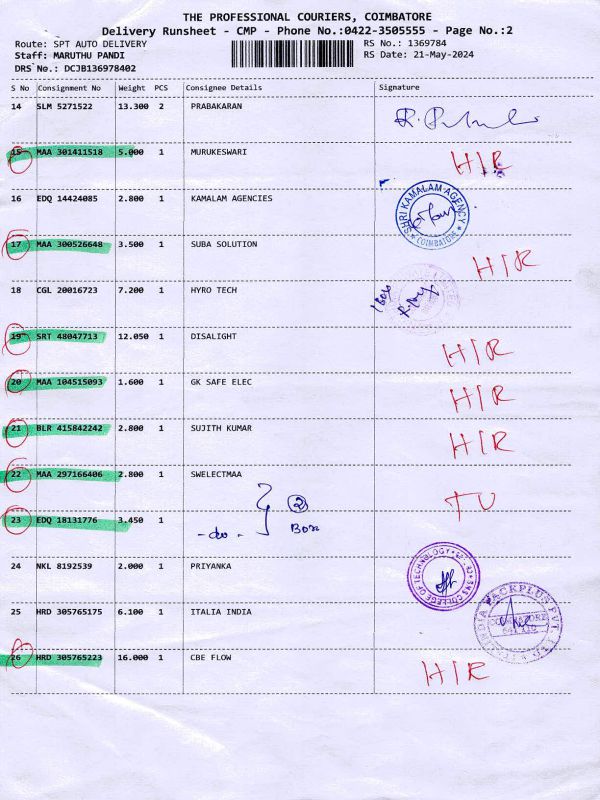 THE PROFESSIONAL COURIERS, COIMBATORE
Delivery Runsheet - CMP - Phone No.:0422-3505555 - Page No.:2
Route: SPT AUTO DELIVERY RS No.: 1369784
Staff: MARUTHU PANDI RS Date: 21-May-2024
DRS No.: DCJB136978402
S No Consignment No Weight PCS Consignee Details Signature
14 SLM 5271522 13.300 2 PRABAKARAN
15 MAA 301411518 5.000 1 MURUKESWARI H/R
16 EDQ 14424085 2.800 1 KAMALAM AGENCIES
SHRI KAMALAM AGENCY
COIMBATORE
17 MAA 300526648 3.500 1 SUBA SOLUTION H/R
18 CGL 20016723 7.200 1 HYRO TECH
19 SRT 48047713 12.050 1 DISALIGHT H/R
20 MAA 104515093 1.600 1 GK SAFE ELEC H/R
21 BLR 415842242 2.800 1 SUJITH KUMAR H/R
22 MAA 297166406 2.800 1 SWELECTMAA TU
23 EDQ 18131776 3.450 1 -do- } 2 Box
24 NKL 8192539 2.000 1 PRIYANKA
SNS COLLEGE OF TECHNOLOGY
25 HRD 305765175 6.100 1 ITALIA INDIA
INDIA PACKPLUS PVT. LTD
COIMBATORE
26 HRD 305765223 16.000 1 CBE FLOW H/R